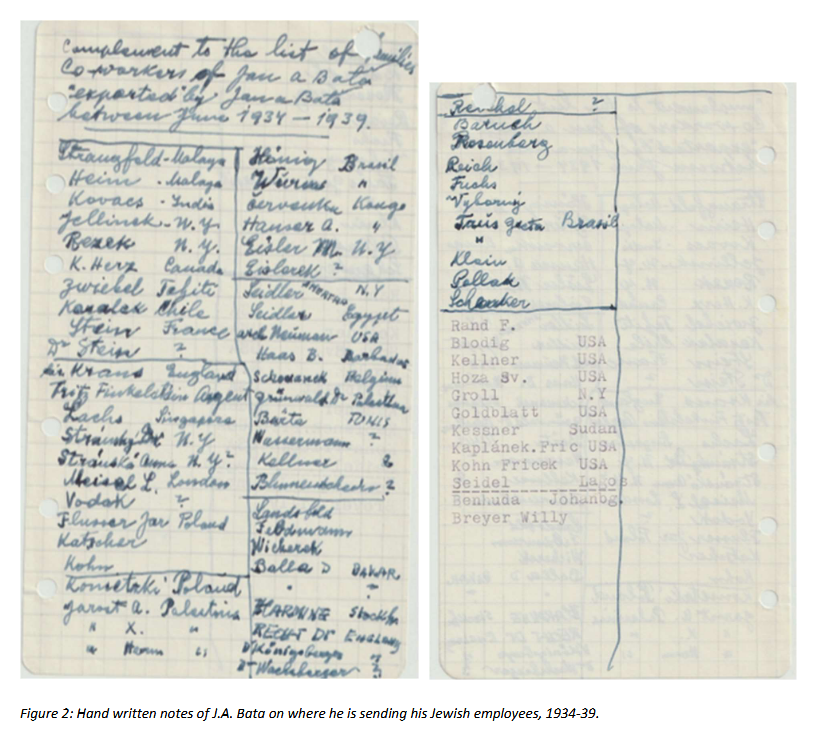 Complement to the list of families
Co-workers of Jan A Bata
"exported" by Jan A Bata
between June 1934 – 1939.
Strangfeld - Malaya
Heim - Malaya
Kovacs - India
Jellinek - N.Y.
Rezek N.Y.
K. Herz Canada
Zwiebel Tahiti
Karalak Chile
Stein France
Dr Stein ?
Kraus England
Fritz Finkelstein Argent
Lachs Singapore
Stransky Dr. N.Y
Stránská Anna N.Y.?
Meisel L. London
Vodak ?
Flusser Jar Poland
Katscher
Kohn
Konietzki Poland
Jarost A. Palestina
" X. "
" Hanna "
Hönig Brasil
Würms "
Červenka Kongo
Hanser A. "
Eisler M. N.Y
Eislerek ?
Seidler N.Y
Seidler Egypt
arch Neuman USA
Haas B. Barbados
Schowanek Belgium
Grünwald Dr Palestina
Bárta TUNIS
Wassermann ?
Kellner
Blumenschein ?
Landsfeld
Feldmann
Wicherek
Balla D DAKAR
"
Stockh
RECHT Dr ENGLAND
Dr Königsberger "
Dr Wachsberger
Reichel ?
Baruch
Rosenberg
Reich
Fuchs
Vyborny
Taus Brasil
"
Klein
Pollak
Rand F.
Blodig USA
Kellner USA
Hoza Sv. USA
Groll N.Y
Goldblatt USA
Kessner Sudan
Kaplánek.Fric USA
Kohn Fricek USA
Seidel Lagos
Benhuda Johanbg.
Breyer Willy
Figure 2: Hand written notes of J.A. Bata on where he is sending his Jewish employees, 1934-39.